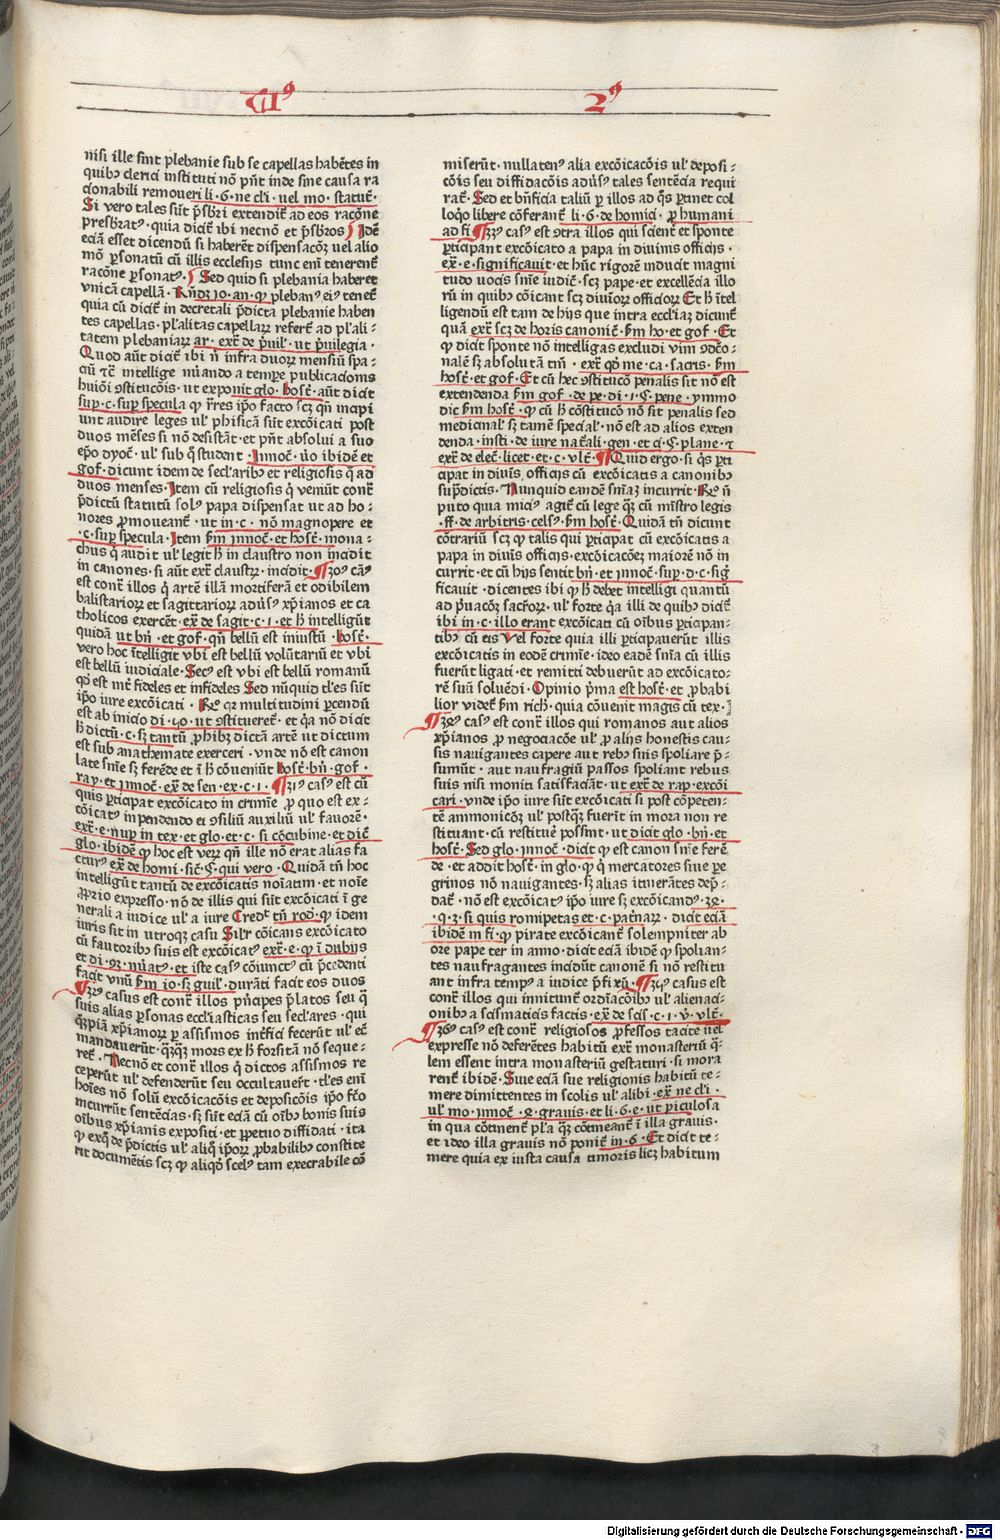 nisi ille sint plebanie sub se capellas habētes in
quibꝰ clerici instituti nō pn̄t inde sine causa ra
cionabili remoueri li·6·ne cl̄i·uel mo·statut̄·
Si vero tales sūt p̄sbri extendit̄ ad eos racōne
presbratꝰ·quia dicit̄ ibi necnō et p̄sbros Idē
eciā esset dicendū si haberēt dispensacōꝫ vel alio
mō ꝑsonatū cū illis ecclesijs tunc enī tenerent̄
racōne ꝑsonatꝰ· Sed quid si plebania haberet
vnicā capellā·Rn̄dꝫ io·an·ꝙ plebanꝰ eiꝰ tenet̄
quia cū dicit̄ in decretali p̄dicta plebanie haben
tes capellas·pl̄alitas capellaꝝ refert̄ ad pl̄ali-
tatem plebaniaꝝ ar·ext̄ de p̄uil̄·ut p̄uilegia·
Quod aūt dicit̄ ibi n̄ infra duoꝝ mensiū spa-
ciū ⁊c̄ intellige nūando a tempore publicacionis
huiōi ꝯstitucōis·ut exponit glo·host̄·aūt dicit
suꝑ·c·suꝑ specula ꝙ r̄res ip̄o facto scꝫ qn̄ mapi
unt audire leges ul̓ phisicā sūt excōicati post
duos mēses si nō desistāt·et pn̄t absolui a suo
ep̄o dyoc̄·ul̓ sub q̄ student·Innoc̄·ūo ibidē et
gof·dicunt idem de sec̄laribꝰ et religiosis q̄ ad
duos menses·Item cū religiosis q̄ veniūt cont̄
p̄dictū statutū solꝰ papa dispensat ut ad ho-
nores ꝓmoueant̄·ut in·c·nō magnopere et
·c·suꝑ specula·Item ẜm innoc̄·et host̄·mona-
chus q̄ audit ul̓ legit h̄ in claustro non incidit
in canones·si aūt exet̄ claustꝝ·incidit·¶30ꝰ cāꝰ
est cont̄ illos q̄ artē illā mortiferā et odibilem
balistarioꝝ et sagittarioꝝ adūsꝰ xp̄ianos et ca
tholicos exercēt·ex̄ de sagit·c·1·et h̄ intelligūt
quidā ut bn̄·et gof·qn̄ bellū est iniustū·host̄·
vero hoc īntelligit vbi est bellū volūtariū et vbi
est bellū iudiciale·Secꝰ est vbi est bellū romanū
qd̄ est int̄ fideles et infideles Sed nūquid tl̄es sūt
ip̄o iure excōicati·Rō qꝫ multitudini ꝑcendū
est ab inicio di·40·ut ꝯstituerent̄·et q̄a nō dicit
h̄ dictū·c·sꝫ tantū ꝓhibꝫ dictā artē ut dictum
est sub anathemate exerceri·vnde nō est canon
late snīe sꝫ ferēde et ī h̄ cōueniūt host̄·bn̄·gof·
ray·et innoc̄·ex̄ de sen·ex·c·1·¶31ꝰ casꝰ est cū
quis ꝑticipat excōicato in crimīe ꝓ quo est ex-
cōicatꝰ inpendendo ei ꝯsiliū auxiliū ul̓ fauorē·
ext̄·e·nuꝑ in tex·et glo·et·c·si cōcubine·et dic̄
glo·ibidē ꝙ hoc est veꝝ qn̄ ille nō erat alias fa
cturꝰ ex̄ de homi·sic̄·§·qui vero·Quidā tn̄ hoc
intelligūt tantū de excōicatis noīatim·et noīe
ꝓprio expresso·nō de illis qui sūt excōicati ī ge
nerali a iudice ul̓ a iure Credit̄ tn̄ rod̄·ꝙ idem
iuris sit in utroqꝫ casu Silr̄ cōicans excōicato
cū fautoribꝰ suis est excōicatꝰ ext̄·e·ꝙ ī dubijs
et di·93·nu̇atꝰ·et iste casꝰ cōiunctꝰ cū p̄cedenti
facit vnū ẜm io·sꝫ guil̓·durāti facit eos duos
¶32ꝰ casus est cont̄ illos p̄ncipes p̄latos seu q̄
suis alias ꝑsonas ecclīasticas seu sec̄lares·qui
q̄ꝫpiā xp̄ianoꝝ ꝑ assismos int̄fici fecerūt ul̓ ec̄
mandauerūt·q̄ꝫq̄ꝫ mors ex h̄ forsitā nō seque-
ret̄·Necnō et cont̄ illos q̄ dictos assismos re
ceperūt ul̓ defenderūt seu occultauerūt·tl̄es enī
hoīes nō solū excōicacōis et deposicōis ip̄o fc̄o
incurrūt sentēcias·sꝫ sūt eciā cū oībꝰ bonis suis
oībus xp̄ianis expositi·et ꝑpetuo diffidati·ita
ꝙ exq̄ de p̄dictis ul̓ aliq̄ ip̄oꝝ ꝓbabilibꝰ constite
rit documētis scꝫ ꝙ aliqd̄ scelꝰ tam execrabile cō
miserūt·nullatenꝰ alia excōicacōis ul̓ deposi-
cōis seu diffidacōis adūsꝰ tales sentēcia requi
rat̄·Sed et bn̄ficia taliū ꝑ illos ad q̄s ꝑtinet col
loq̇o libere cōferant̄ li·6·de homici·ꝓ humani
ad fi ¶33ꝰ casꝰ est ꝯtra illos qui scient̄ et sponte
ꝑticipant excōicato a papa in diuinis officijs·
ex̄·e·significauit·et hūc rigorē inducit magni
tudo uocis snīe iudic̄·scꝫ pape·et excellēcia illo
rū in quibꝰ cōicant scꝫ diuīoꝝ officioꝝ Et h̄ ītel
ligendū est tam de hijs que intra eccl̄iaꝫ dicunt̄
quā ext̄ scꝫ de horis canonic̄·ẜm ho·et gof·Et
ꝙ dicit sponte nō intelligas excludi vim ꝯdic̄o-
nalē sꝫ absolutā tm̄·ext̄ qd̄ me·ca·sacris·ẜm
host̄·et gof·Et cū hec ꝯstitucō penalis sit nō est
extendenda ẜm gof·de pe·di·1·§·pene·ymmo
dic ẜm host̄·ꝙ cū h̄ cōstitucō nō sit penalis sed
medicinal̓ sꝫ tamē special̓·nō est ad alios exten
denda·insti·de iure nat̄ali·gen·et ci·§·plane·⁊
ext̄ de elec̄·licet·et·c·vlt̄·¶Quid ergo·si q̄s ꝑti
cipat in diuis̄ officijs cū excōicatis a canonibꝰ
sup̄dictis·Nunquid eandē snīaꝫ incurrit·Rō n̄
puto quia miciꝰ agit̄ cū lege q̄ꝫ cū mīstro legis
·ff·de arbitris·celsꝰ·ẜm host̄·Quidā tn̄ dicunt
cōtrariū scꝫ ꝙ talis qui ꝑticipat cū excōicatis a
papa in diuis̄ officijs·excōicacōeꝫ maiorē nō in
currit·et cū hijs sentit bn̄·et innoc̄·suꝑ·d·c·sig̃
ficauit·dicentes ibi ꝙ h̄ debet intelligi quantū
ad p̄uacōꝫ sacroꝝ·ul̓ forte q̄a illi de quibꝰ dicit̄
ibi in·c·illo erant excōicati cū oībus ꝑticipan-
tibꝰ cū eis Vel forte quia illi ꝑticipauerūt illis
excōicatis in eodē crimīe·ideo eadē snīa cū illis
fuerūt ligati·et remitti debuerūt ad excōicato-
rē suū soluēdi·Opinio p̄ma est host̄·et ꝓbabi
lior videt̄ ẜm rich·quia cōuenit magis cū tex·
¶34ꝰ casꝰ est cont̄ illos qui romanos aut alios
xp̄ianos ꝓ negociacōe ul̓ ꝓ alijs honestis cau-
sis nauigantes capere aut rebꝰ suis spoliare p̄-
sumūt·aut naufragiū passos spoliant rebus
suis nisi moniti satisfaciāt·ut ext̄ de rap·excōi
cari·vnde ip̄o iure sūt excōicati si post cōpeten-
tē ammonicōꝫ ul̓ postq̄ꝫ fuerīt in mora non re
stituant·cū restituē possint·ut dicit glo·bn̄·et
host̄·Sed glo·innoc̄·dicit ꝙ est canon snīe ferē
de·et addit host̄·in glo·ꝙ q̄ mercatores siue pe
grinos nō nauigantes·sꝫ alias itinerātes dep̄-
dat̄·nō est excōicatꝰ ip̄o iure sꝫ excōicandꝰ·32·
·q·3·si quis romipetas et·c·pat̄naꝝ·dicit eciā
ibidē in fi·ꝙ pirate excōicant̄ solempniter ab
ore pape ter in anno·dicit eciā ibidē ꝙ spolian-
tes naufragantes incidūt canonē si nō restitu
ant infra tempꝰ a iudice p̄fixū·¶35ꝰ casus est
cont̄ illos qui innitunt̄ ordīacōibꝰ ul̓ alienaci-
onibꝰ a scismaticis factis·ex̄ de scis·c·1·v̄·vlt̄·
¶36ꝰ casꝰ est cont̄ religiosos ꝓfessos tacite uel
expresse nō deferētes habitū ext̄ monasteriū q̄-
lem essent intra monasteriū gestaturi·si mora
rent̄ ibidē·Siue eciā sue religionis habitū te-
mere dimittentes in scolis ul̓ alibi·ex̄ ne cl̄i·
ul̓ mo·innoc̄·2·grauis·et li·6·e·ut ꝑiculosa
in qua cōtinent̄ pl̄a q̄ꝫ cōtineant̄ ī illa grauis·
et ideo illa grauis nō ponit̄ in·6·Et dicit te-
mere quia ex iusta causa timoris licꝫ habitum
Digitalisierung gefördert durch die Deutsche Forschungsgemeinschaft · DFG